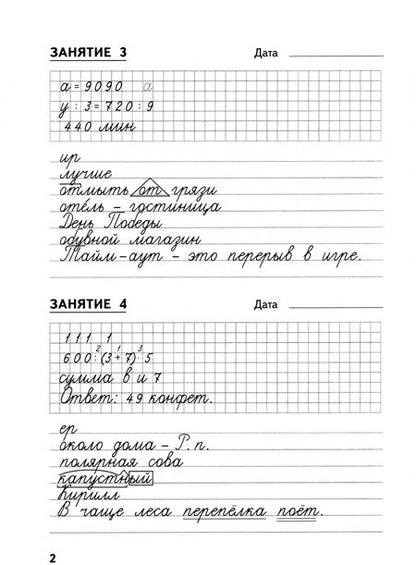 ЗАНЯТИЕ 3 Дата
a = 9090 a
y : 3 = 720 : 9
440 мин
ир
лучше
отмыть от грязи
оте́ль – гостиница
День Победы
обувной магазин
Тайм-аут – это перерыв в игре.
ЗАНЯТИЕ 4 Дата
1 1 1 1
2 1 3
600 : (3 + 7) · 5
сумма 8 и 7
Ответ: 49 конфет.
ер
около дома – Р. п.
полярная сова
капустный
Кирилл
В чаще леса перепёлка поёт.
2